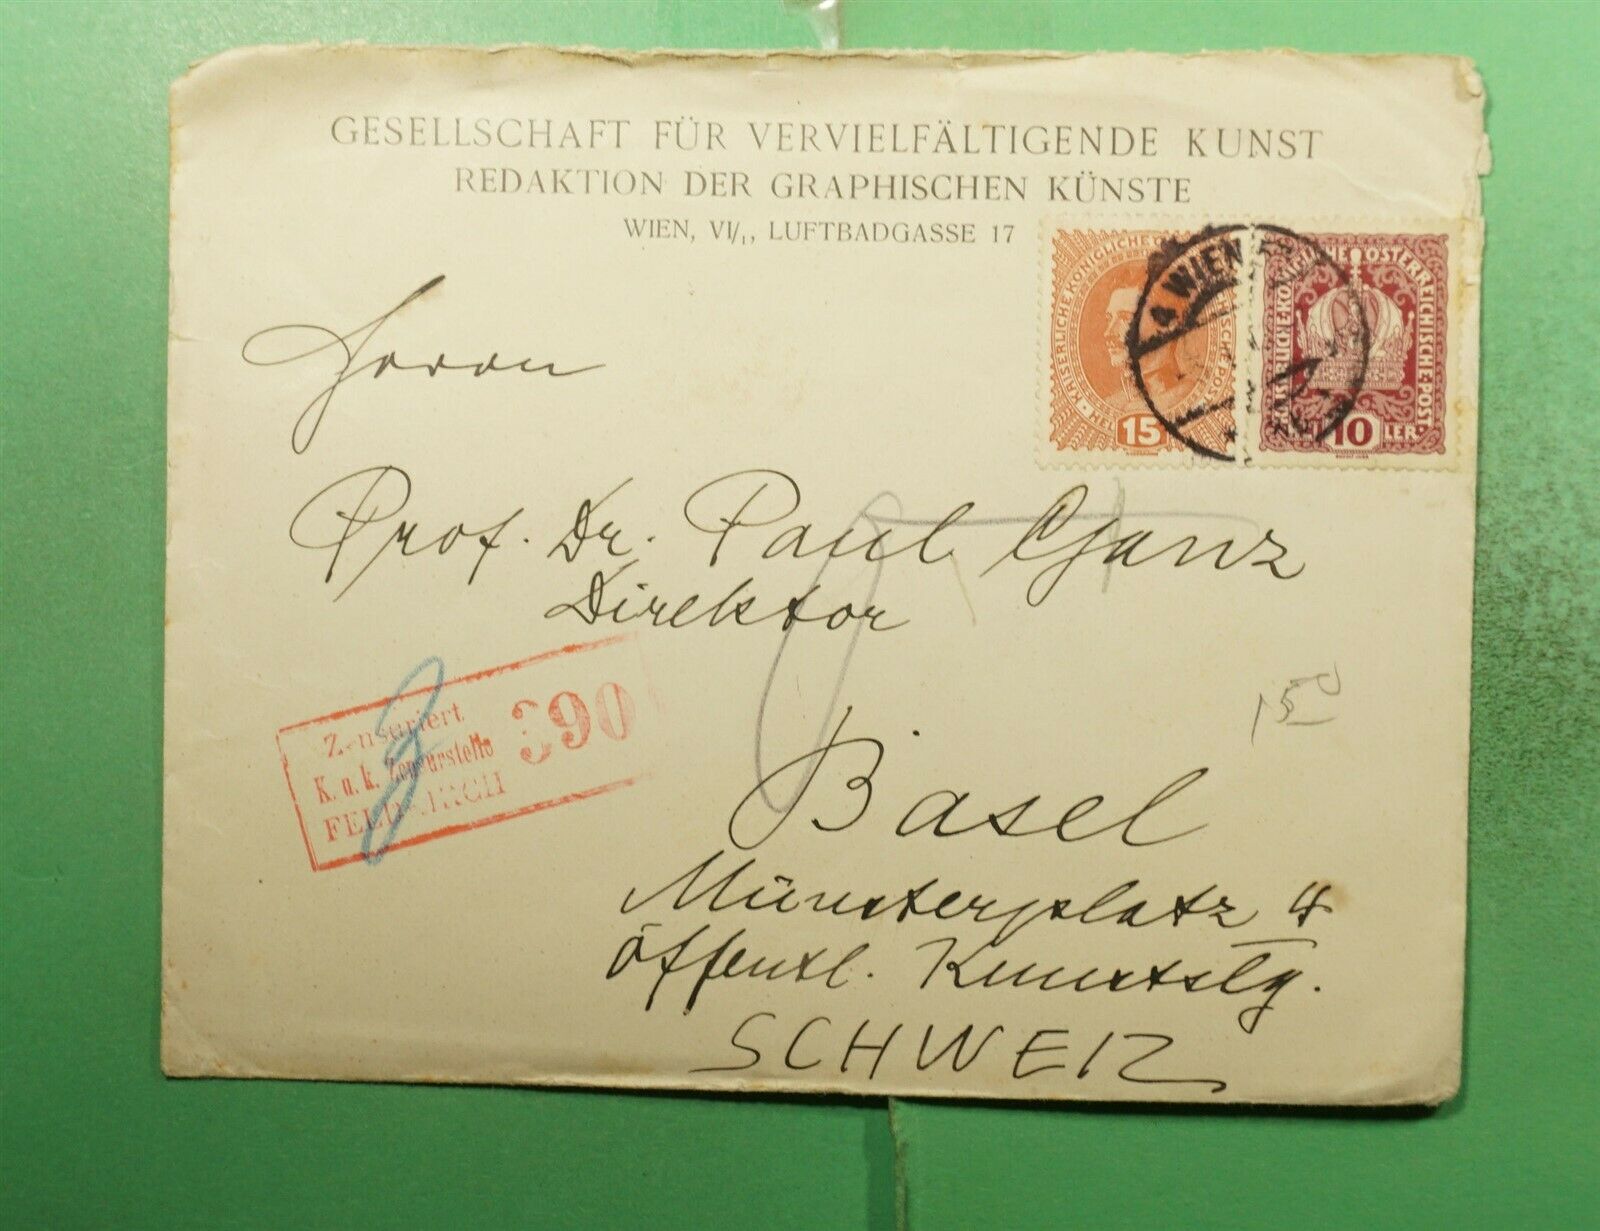 GESELLSCHAFT FÜR VERVIELFÄLTIGENDE KUNST
REDAKTION DER GRAPHISCHEN KÜNSTE
WIEN, VI/1, LUFTBADGASSE 17
KAISERLICHE KÖNIGLICHE
15
WIEN
ÖSTERREICHISCHE·POST
10
Herrn
Prof. Dr. Paul Ganz
Direktor
Zensuriert
K. u. k. Zensurstelle
FELDKIRCH
390
150
Basel
Münsterplatz 4
Öffentl. Kunstslg.
SCHWEIZ